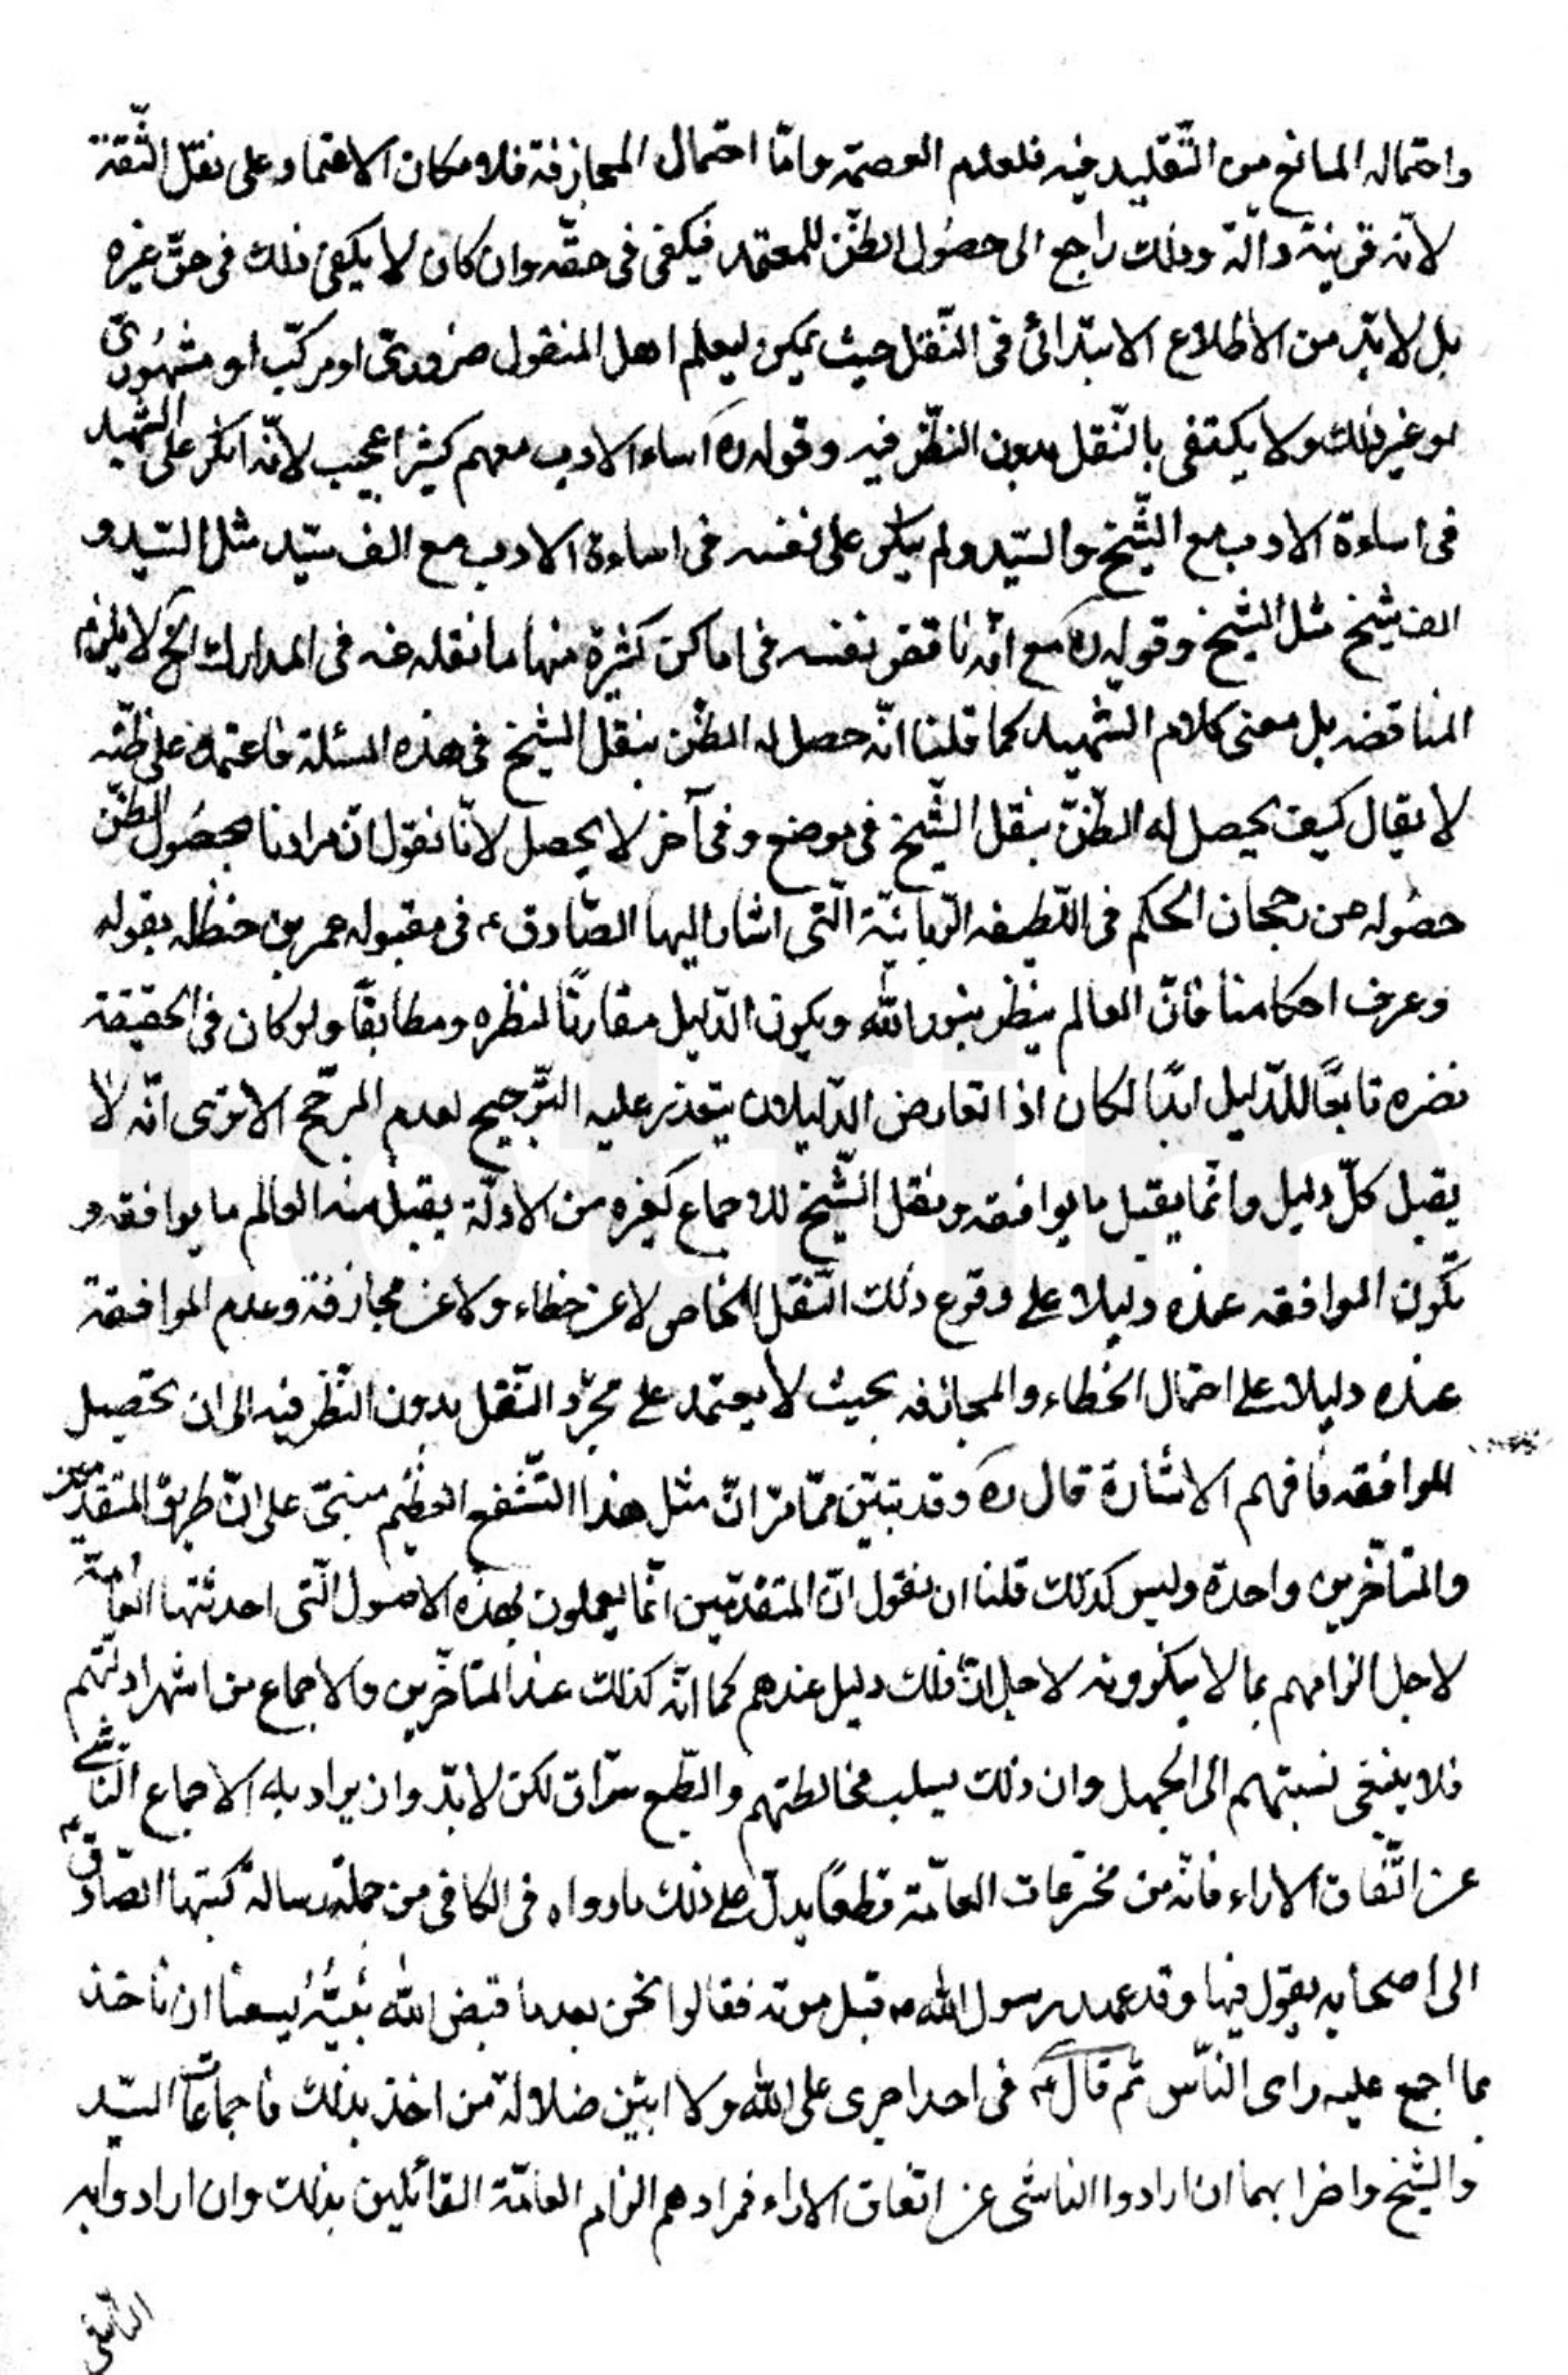 واحتماله المانع من التّقليد فيه فلعدم العصمة وامّا احتمال المجازفة فلامكان الاعتماد على نقل الثّقة
لانّه قرينة دالّة وذلك راجع الى حصُول الظّن للمعتمد فيكفى فى حقّه وان كان لا يكفى ذلك فى حقّ غيره
بل لا بدّ من الاطلاع الابتدائى فى النّقل حيث يمكن ليعلم اهل المنقول ضرورىّ او مركّب او مشهُورىّ
او غير ذلك ولا يكتفى بالنّقل بدون النظّر فيه وقوله ره اساء الادب معهم كثيرا عجيب لانّه انكر على الشّهيد
فى اساءة الادب مع الشّيخ والسّيد ولم ينكر على نفسه فى اساءة الادب مع الف سيّد مثل السّيد و
الف شيخ مثل الشّيخ وقوله ره مع انّه ناقض نفسه فى اماكن كثيرة منها ما نقله عنه فى المدارك الخ لا يلزم
المناقضه بل معنى كلام الشّهيد كما قلنا انّه حصل له الظّن بنقل الشّيخ فى هذه المسئلة فاعتمد على ظنّه
لا يقال كيف يحصل له الظّنّ بنقل الشّيخ فى موضع وفى آخر لا يحصل لانّا نقول انّ مرادنا بحصُول الظّن
حصُوله من رجحان الحكم فى اللّطيفه الرّبانيّة الّتى اشار اليها الصّادق ع فى مقبوله عمر بن حنظله بقوله
وعرف احكامنا فانّ العالم ينظر بنور الله ويكون الدّليل مقارنًا لنظره ومطابقًا ولو كان فى الحقيقة
نضره تابعًا للدّليل ابدًا لكان اذا تعارض الدّليلان يتعذر عليه التّرجيح لعدم المرجّح الا ترى انّه لا
يقبل كلّ دليل وانّما يقبل ما يوافقه ونقل الشّيخ للاجماع كغيره من الادلّة يقبل منه العالم ما يوافقه و
تكون الموافقه عنده دليلا على وقوع ذلك النّقل الخاص لا عن خطاء ولا عن مجازفة وعدم الموافقة
عنده دليلا على احتمال الخطاء والمجازفه بحيث لا يعتمد على مجرّد النّقل بدون النّظر فيه الى ان تحصيل
الموافقه فافهم الاشارة قال ره وقد تبيّن ممّا مرّ انّ مثل هذا التّشنيع العظيم مبنىّ على انّ طريق المتقدّمين
والمتأخّرين واحدة وليس كذلك قلنا ان نقول انّ المتقدّمين انّما يعملون بهذه الاصول الّتى احدثتها العامّة
لاجل الزامهم بما لا ينكرونه لا حل انّ ذلك دليل عندهم كما انّه كذلك عند المتأخّرين والاجماع من اشهر ادلّتهم
فلا ينبغى نسبتهم الى الجهل وان ذلك بسبب مخالطتهم والطّبع سرّاق لكن لا بدّ وان يراد به الاجماع النّاشى
عن اتّفاق الاراء فانّه من مخترعات العامّة قطعًا يدلّ على ذلك ما رواه فى الكافى من جملة رسالة كتبها الصّادق ع
الى اصحابه يقول فيها وقد عهد رسول الله ص قبل موته فقالوا نحن بعد ما قبض الله نبيّهُ يسعنا ان نأخذ
بما اجمع عليه راى النّاس ثم قال ع فى احد اجرى على الله ولا ابين ضلالة من اخذ بذلك فاجماعات السيّد
والشّيخ واضرابهما ان ارادوا الناشى عن اتفاق الاراء فمرادهم الزام العامّة القائلين بذلك وان ارادوا به